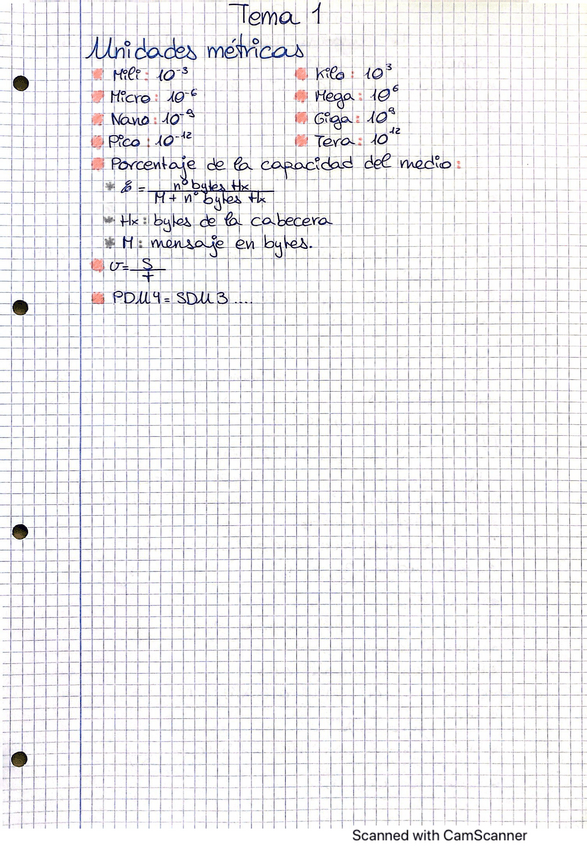 Tema 1
Unidades métricas
Mili: 10⁻³
Micro: 10⁻⁶
Nano: 10⁻⁹
Pico: 10⁻¹²
Kilo: 10³
Mega: 10⁶
Giga: 10⁹
Tera: 10¹²
Porcentaje de la capacidad del medio:
= nº bytes Hx / M + nº bytes Hx
Hx: bytes de la cabecera
M: mensaje en bytes.
v = S / T
PDU4 = SDU3 ....
Scanned with CamScanner